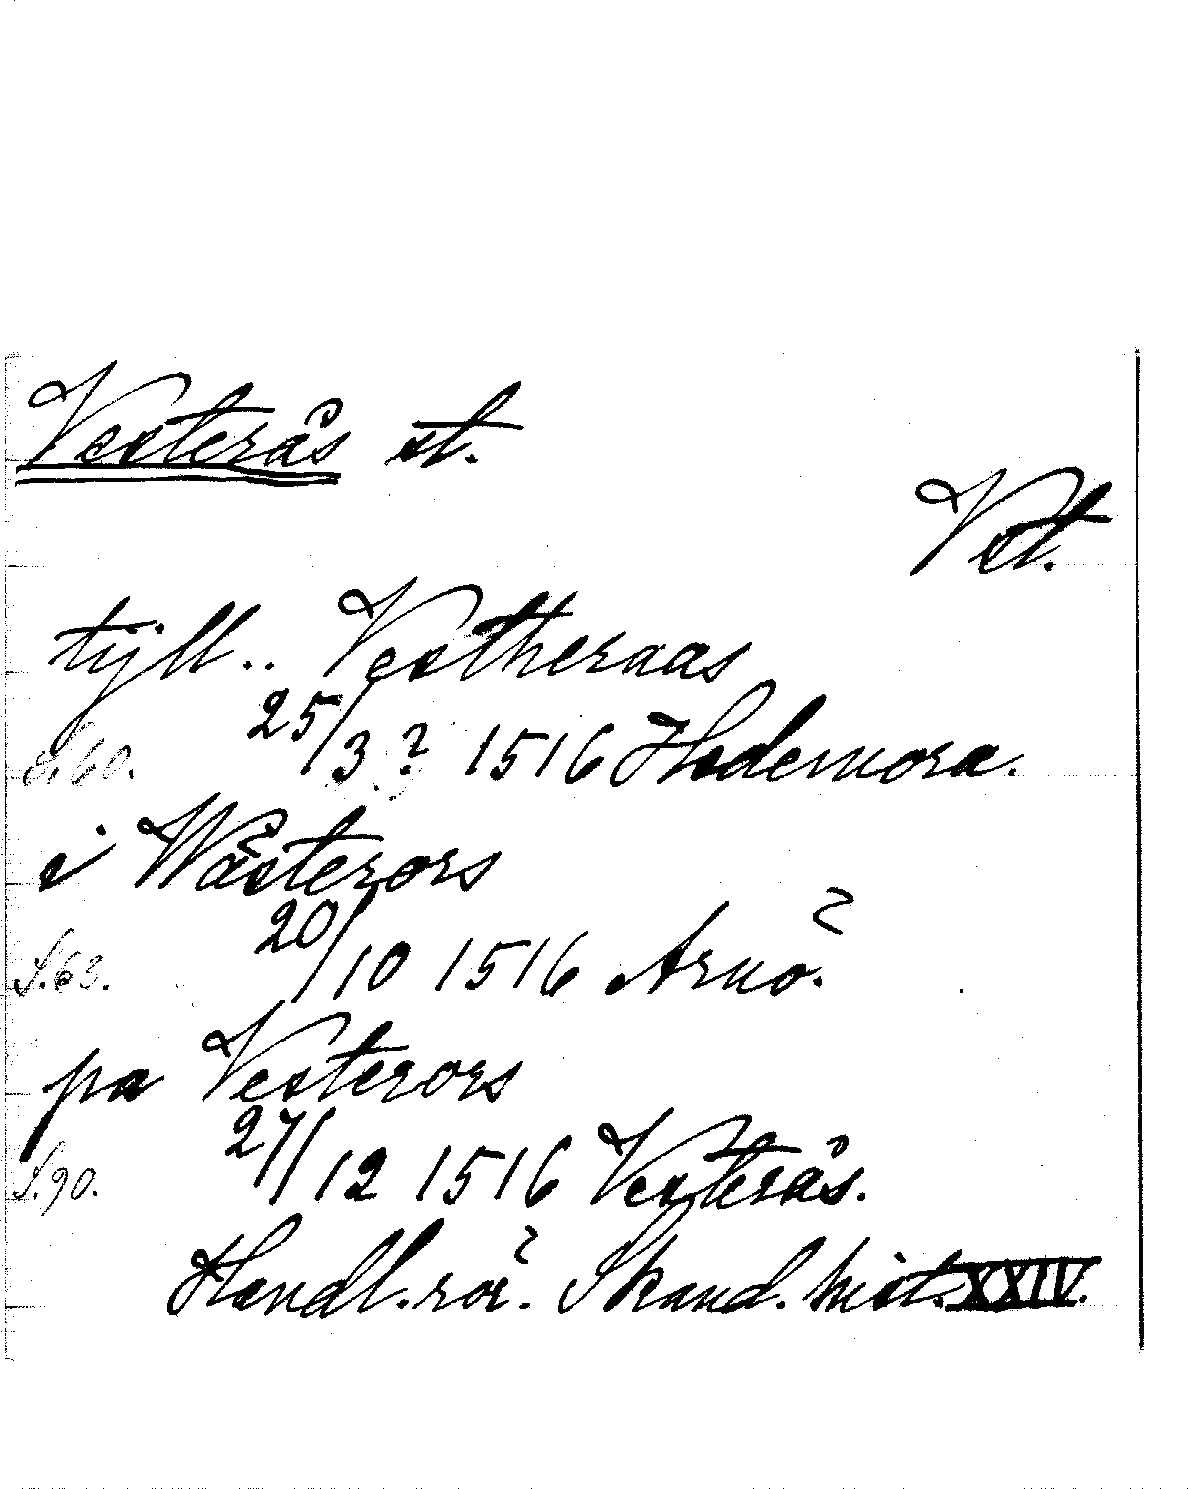 Vesterås st.
Vst.
tyll.. Vestheraas
S.60. 25/3? 1516 Hedemora.
i Wästerors
S.63. 20/10 1516 Arnö.
pa Vesterors
S.90. 27/12 1516 Vesterås.
Handl. rör. Skand. hist. XXIV.